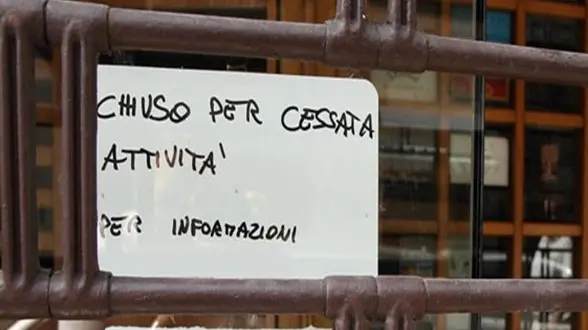 CHIUSO PER CESSATA
ATTIVITA'
PER INFORMAZIONI